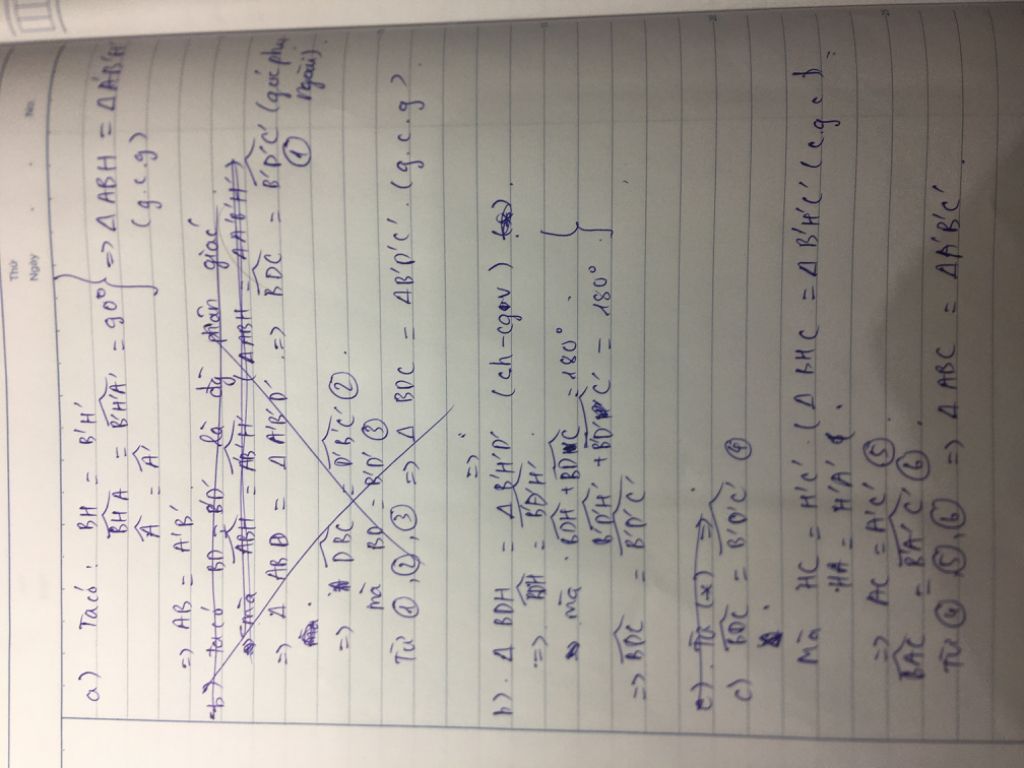 Thứ
Ngày
No.
a) Ta có: BH = B'H'
BHA = B'H'A' = 90°
A = A'
=> Δ ABH = Δ A'B'H'
(g.c.g)
=> AB = A'B'
b) Ta có BD = B'D' là đg phân giác
mà ABH = A'B'H' (Δ ABH = Δ A'B'H')
=> Δ ABD = Δ A'B'D' => BDC = B'D'C' (góc phụ
ngoài). ①
=> DBC = D'B'C' ②
mà BD = B'D' ③
Từ ①, ②, ③ => Δ BDC = Δ B'D'C'. (g.c.g)
=>
b). Δ BDH = Δ B'H'D' (ch-cgv)
=> BDH = B'D'H'
mà BDH + BDC = 180°
B'D'H' + B'D'C' = 180°
=> BDC = B'D'C'
c). Từ (x) =>
c) BDC = B'D'C' ④
Mà HC = H'C' (Δ BHC = Δ B'H'C' (c.g.c)
HA = H'A'
=> AC = A'C' ⑤
BAC = B'A'C' ⑥
Từ ④ ⑤, ⑥ => Δ ABC = Δ A'B'C'